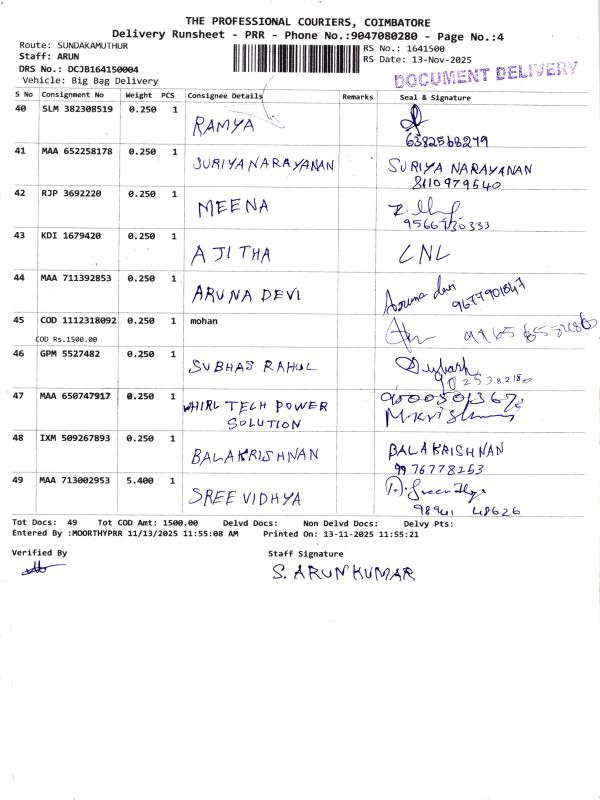 THE PROFESSIONAL COURIERS, COIMBATORE
Delivery Runsheet - PRR - Phone No.:9047080280 - Page No.:4
Route: SUNDAKAMUTHUR
RS No.: 1641500
Staff: ARUN
RS Date: 13-Nov-2025
DRS No.: DCJB164150004
Vehicle: Big Bag Delivery
DOCUMENT DELIVERY
S No Consignment No Weight PCS Consignee Details Remarks Seal & Signature
40 SLM 382308519 0.250 1 RAMYA
6382568279
41 MAA 652258178 0.250 1 SURIYA NARAYANAN SURIYA NARAYANAN
8110979540
42 RJP 3692220 0.250 1 MEENA
43 KDI 1679420 0.250 1 AJITHA LNL
44 MAA 711392853 0.250 1 ARUNA DEVI Aruna devi
9677901847
45 COD 1112318092 0.250 1 mohan
COD Rs.1500.00
46 GPM 5527482 0.250 1 SUBHAS RAHUL
9025382180
47 MAA 650747917 0.250 1 WHIRL TECH POWER
SOLUTION
48 IXM 509267893 0.250 1 BALAKRISHNAN BALAKRISHNAN
9976778153
49 MAA 713002953 5.400 1 SREE VIDHYA
98941 48626
Tot Docs: 49 Tot COD Amt: 1500.00 Delvd Docs: Non Delvd Docs: Delvy Pts:
Entered By :MOORTHYPRR 11/13/2025 11:55:08 AM Printed On: 13-11-2025 11:55:21
Verified By Staff Signature
S. ARUNKUMAR